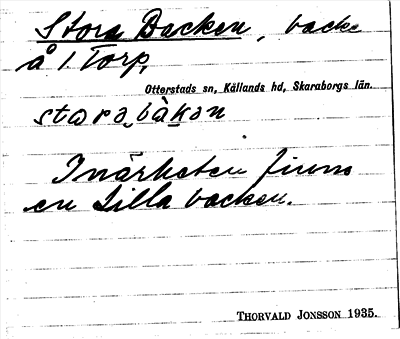 Stora Backen, backe
å 1 Torp,
Otterstads sn, Kållands hd, Skaraborgs län.
I närheten finns
en Lilla backen.
THORVALD JONSSON 1935.